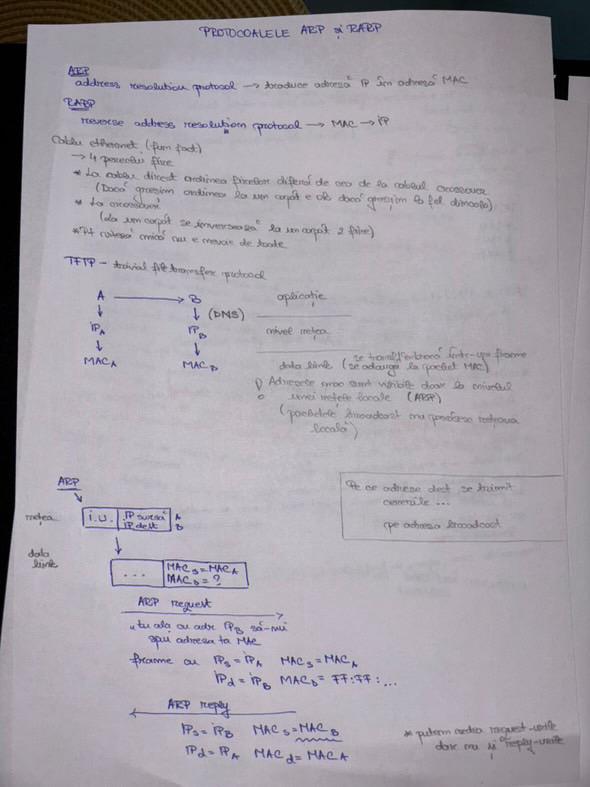 PROTOCOALELE ARP și RARP
ARP
address resolution protocol → traduce adresă IP în adresă MAC
RARP
reverse address resolution protocol → MAC → IP
Cablu ethernet (fun fact)
→ 4 perechi fire
* La cablu direct ordinea firelor diferă de cea de la cablul crossover
(Dacă greșim ordinea la un capăt e ok dacă greșim la fel dincolo)
* La crossover
(la un capăt se inversează la un capăt 2 fire)
* Pt viteză mică nu e nevoie de toate
TFTP - trivial file transfer protocol
A → B aplicație
↓ ↓ (DNS)
IPA IPB nivel rețea
↓ ↓
MACA MACB data link (se transf. în într-un frame
(se adaugă la pachet MAC)
! Adresele mac sunt vizibile doar la nivelul
unei rețele locale (ARP)
(pachetele broadcast nu părăsesc rețeaua
locală)
ARP
rețea i.u. IP sursă A
IP dest B
Pe ce adrese dest se trimit
cererile ...
pe adresa broadcast
data
link ... MACs = MACA
MACD = ?
ARP request
"tu ăla cu adr IPB să-mi
spui adresa ta MAC
frame cu IPs = IPA MACs = MACA
IPd = IPB MACD = FF:FF:...
ARP reply
IPs = IPB MACs = MACB
IPd = IPA MACd = MACA
* putem avea request-urile
dar nu și reply-urile